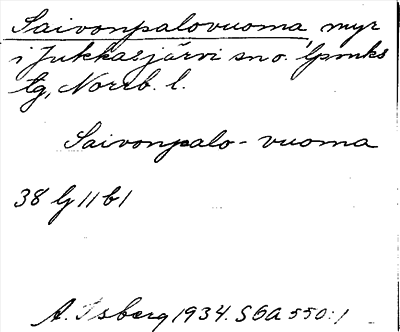 Saivonpalovuoma, myr
i Jukkasjärvi sn o. lpmks
tg, Norrb. l.
Saivonpalo-vuoma
38 lj 11 b 1
A. Isberg 1934. SOA 550:1